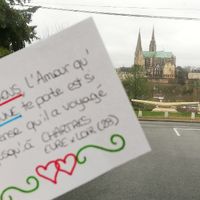 l'Amour qu'
te porte est si
qu'il a voyagé
jusqu'à CHARTRES
EURE & LOIR (28)